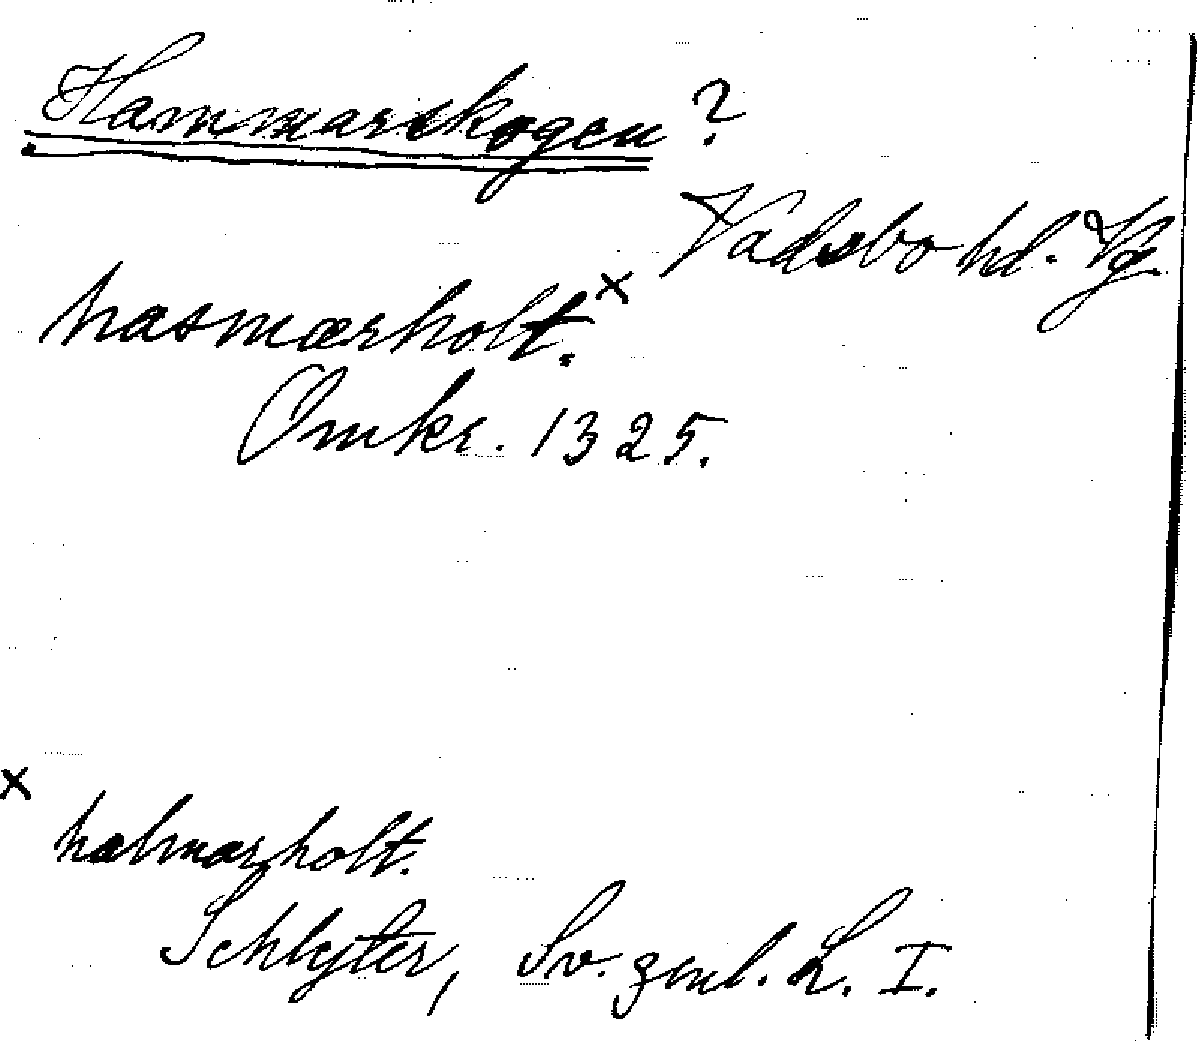 Hammarskogen?
Vadsbo hd. Vg.
hasmærholt. x
Omkr. 1325.
x
halmærholt.
Schlyter, Sv. gml. L. I.